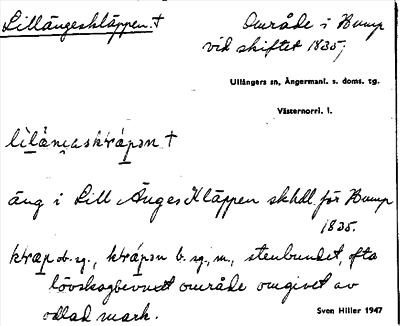 Lillängeskläppen. †
Område i Bump
vid skiftet 1835;
Ullångers sn, Ångermanl. s. doms. tg.
Västernorrl. l.
lìlåŋaskrápən †
äng i Lill Änges Kläppen skhdl för Bump
1835.
krap ob. sg., krápən b. sg., m., stenbundet, ofta
lövskogbevuxet område omgivet av
odlad mark.
Sven Hiller 1947